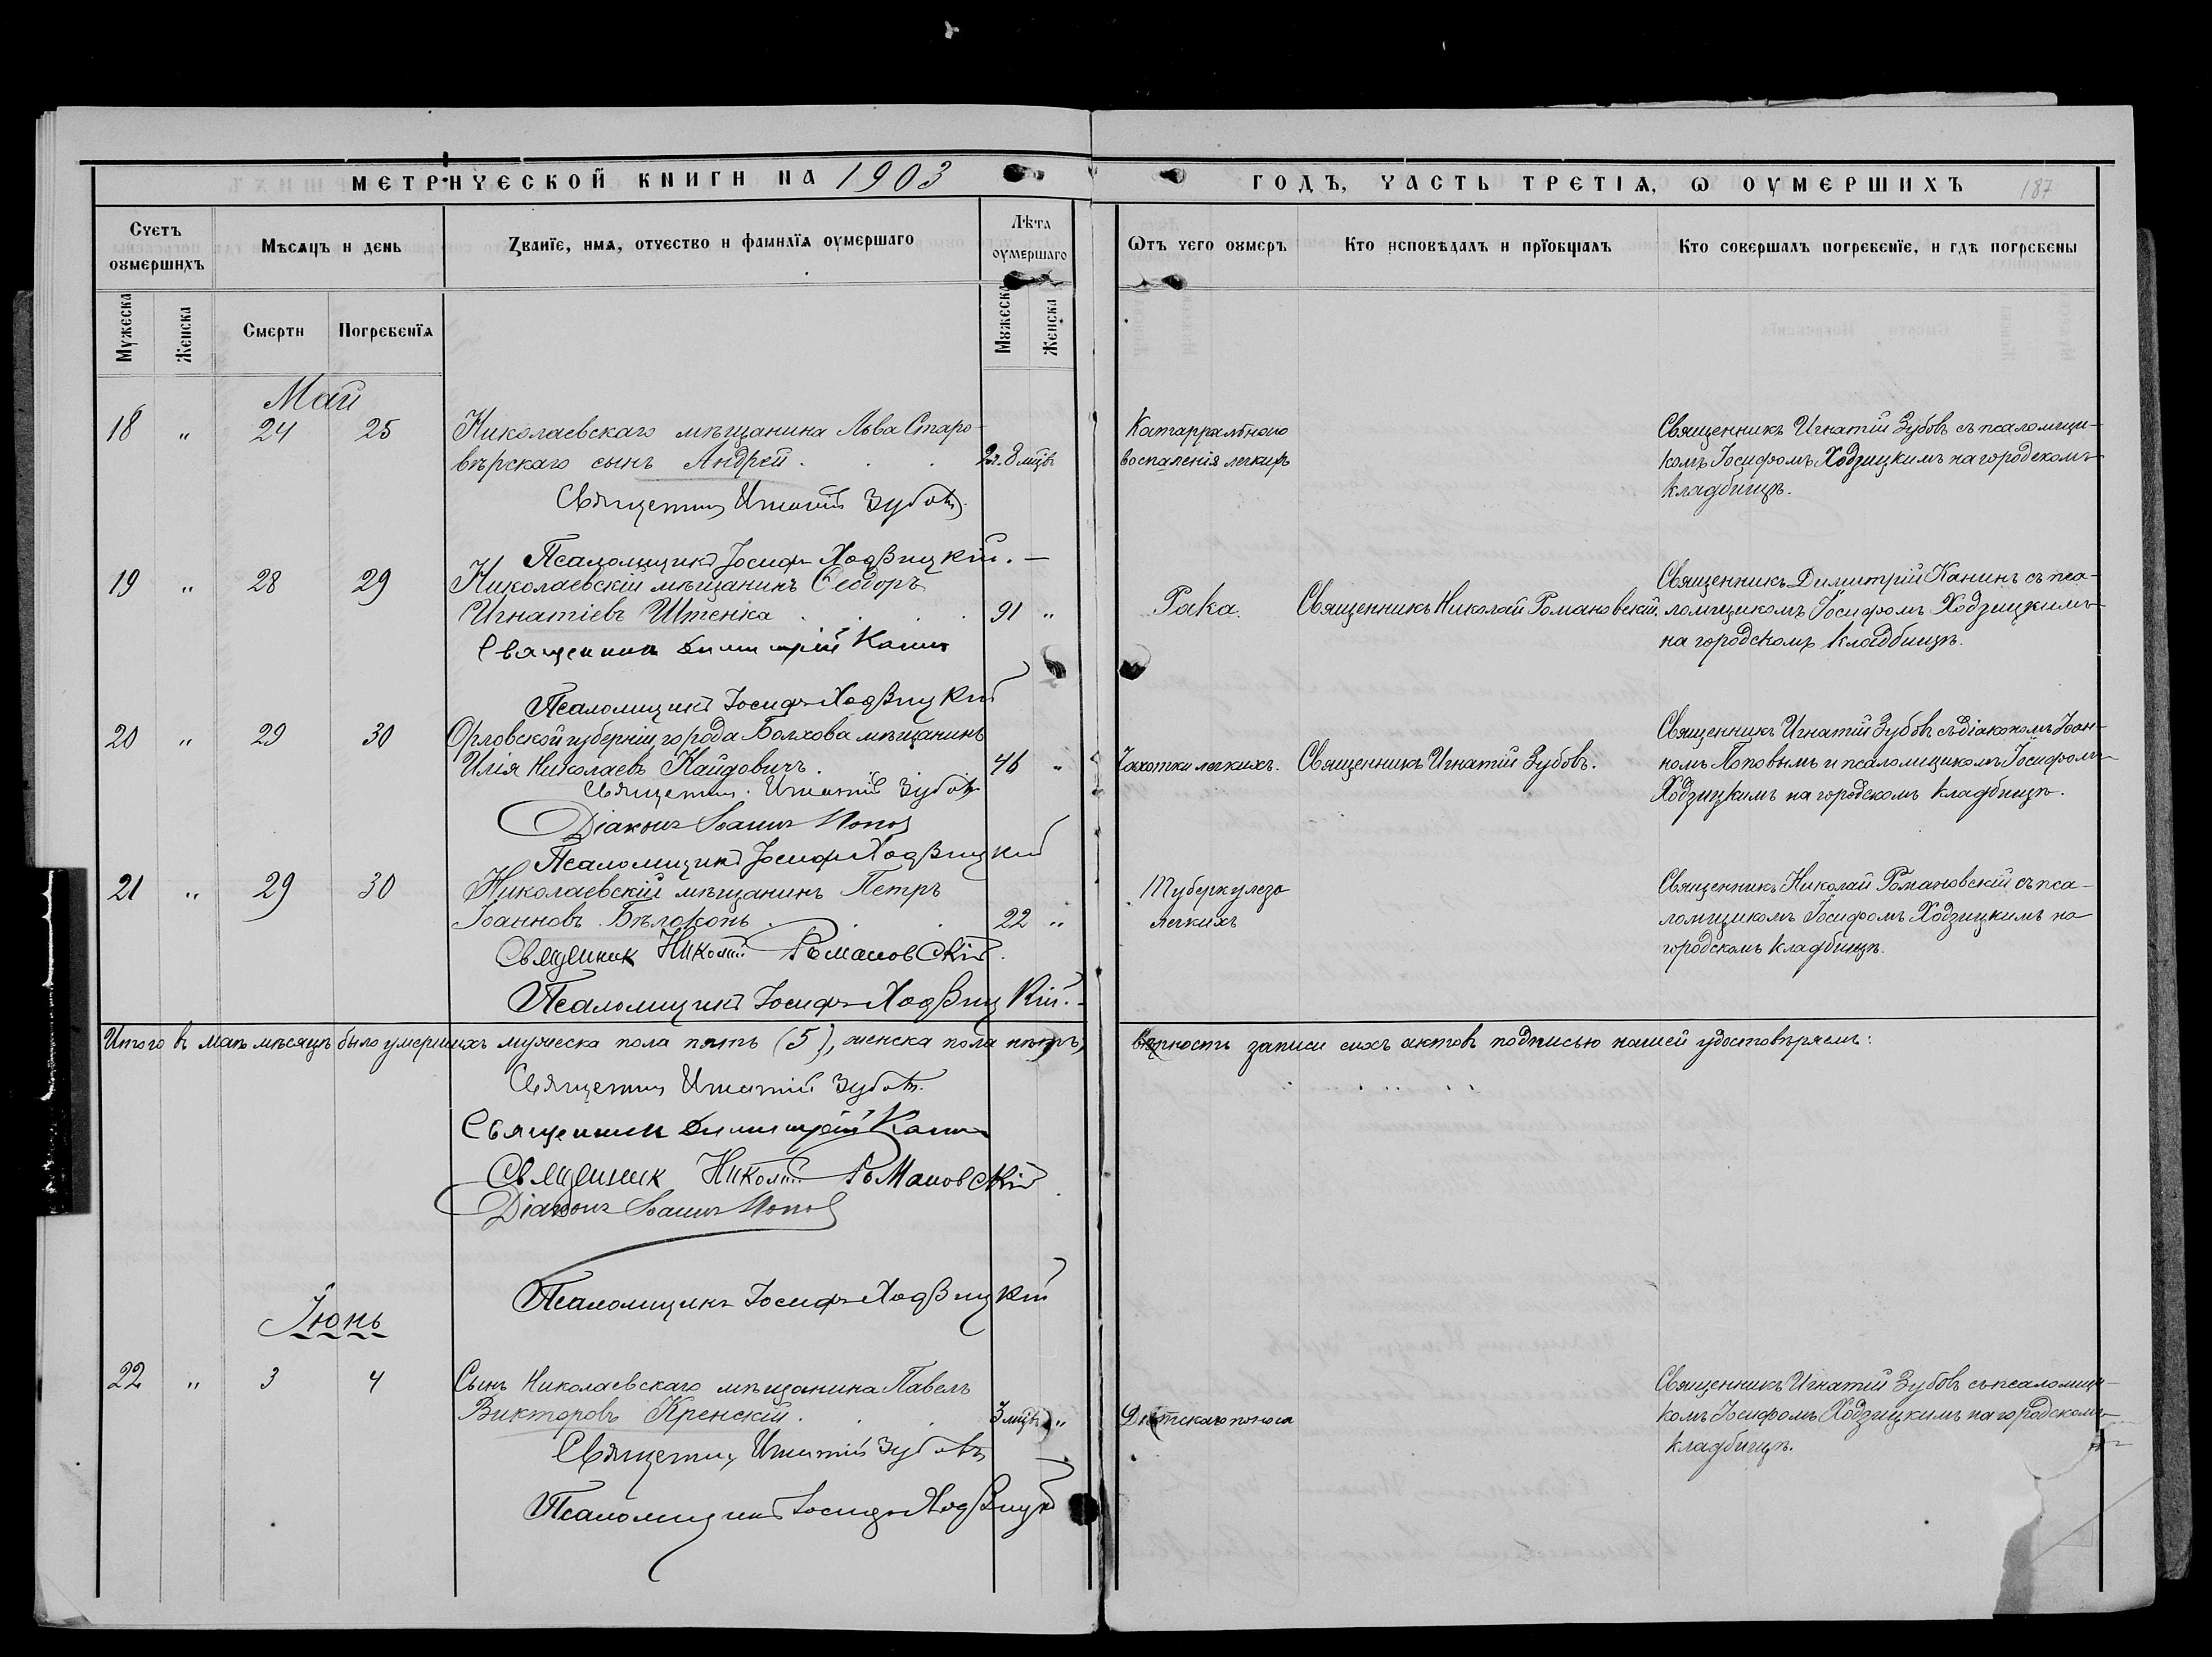 МЕТРИЧЕСКОЙ КНИГИ НА 1903
ГОДЪ, ЧАСТЬ ТРЕТІѦ, Ѡ ОУМЕРШИХЪ
187
Счетъ оумершихъ
Мѣсѧцъ и день
Званїе, имѧ, отчество и фамилїѧ оумершаго
Лѣта оумершаго
Ѿтъ чего оумеръ
Кто исповѣдалъ и прїобщалъ
Кто совершалъ погребенїе, и гдѣ погребены
Мужеска
Женска
Смерти
Погребенїѧ
Мужеска
Женска
Май
18 " 24 25 Николаевскаго мѣщанина Льва Старо-
вѣрскаго сынъ Андрей . . . 2г. 8 мцвъ
Катарральнаго
воспаленія легкихъ
Священникъ Игнатій Зубовъ съ псаломщи-
комъ Іосифомъ Ходзицкимъ на городскомъ
кладбищѣ.
Священникъ Игнатій Зубовъ.
Псаломщикъ Іосифъ Ходзицкій. —
19 " 28 29 Николаевскій мѣщанинъ Ѳеодоръ
Игнатіевъ Штенка . . . 91 "
Рака.
Священникъ Николай Романовскій.
Священникъ Димитрій Канинъ съ пса-
ломщикомъ Іосифомъ Ходзицкимъ
на городскомъ кладбищѣ.
Священникъ Димитрій Канинъ
Псаломщикъ Іосифъ Ходзицкій
20 " 29 30 Орловской губерніи, города Болхова мѣщанинъ
Илія Николаевъ Найдовичъ. 46 "
Чахотки легкихъ.
Священникъ Игнатій Зубовъ.
Священникъ Игнатій Зубовъ съ діакономъ Іоан-
номъ Поповымъ и псаломщикомъ Іосифомъ
Ходзицкимъ на городскомъ кладбищѣ.
Священникъ Игнатій Зубовъ
Діаконъ Іоаннъ Поповъ
Псаломщикъ Іосифъ Ходзицкій
21 " 29 30 Николаевскій мѣщанинъ Петръ
Іоанновъ Бѣлоконь . . . 22 "
Туберкулеза
легкихъ
Священникъ Николай Романовскій съ пса-
ломщикомъ Іосифомъ Ходзицкимъ на
городскомъ кладбищѣ.
Священникъ Николай Романовскій.
Псаломщикъ Іосифъ Ходзицкій.
Итого въ маѣ мѣсяцѣ было умершихъ мужеска пола пять (5), женска пола нѣтъ,
вѣрность записи сихъ актовъ подписью нашей удостовѣряемъ:
Священникъ Игнатій Зубовъ.
Священникъ Димитрій Канинъ
Священникъ Николай Романовскій
Діаконъ Іоаннъ Поповъ
Псаломщикъ Іосифъ Ходзицкій
Іюнь
22 " 3 4 Сынъ Николаевскаго мѣщанина Павелъ
Викторовъ Кренскій . . . 3 мцвъ "
Дѣтскаго поноса
Священникъ Игнатій Зубовъ съ псаломщи-
комъ Іосифомъ Ходзицкимъ на городскомъ
кладбищѣ.
Священникъ Игнатій Зубовъ
Псаломщикъ Іосифъ Ходзицкій